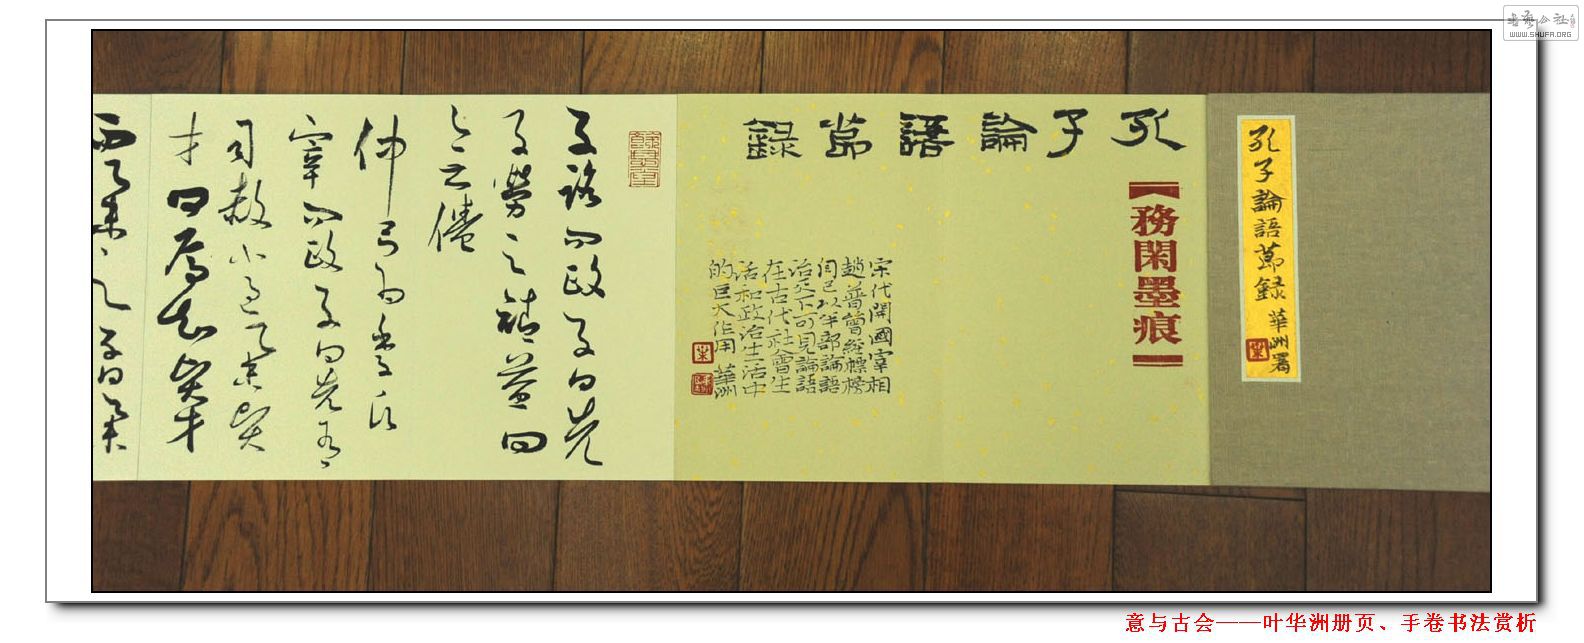 孔子論語節録 華洲署
孔子論語節録
務閑墨痕
宋代開國宰相
趙普曾經標榜
自己以半部論語
治天下可見論語
在古代社會生
活和政治生活中
的巨大作用 華洲
子路问政子曰先
之勞之請益曰
無倦
仲弓为季氏
宰问政子曰先有
司赦小過舉賢
才曰焉知賢才
而舉之子曰舉
WWW.SHUFA.ORG
意与古会——叶华洲册页、手卷书法赏析